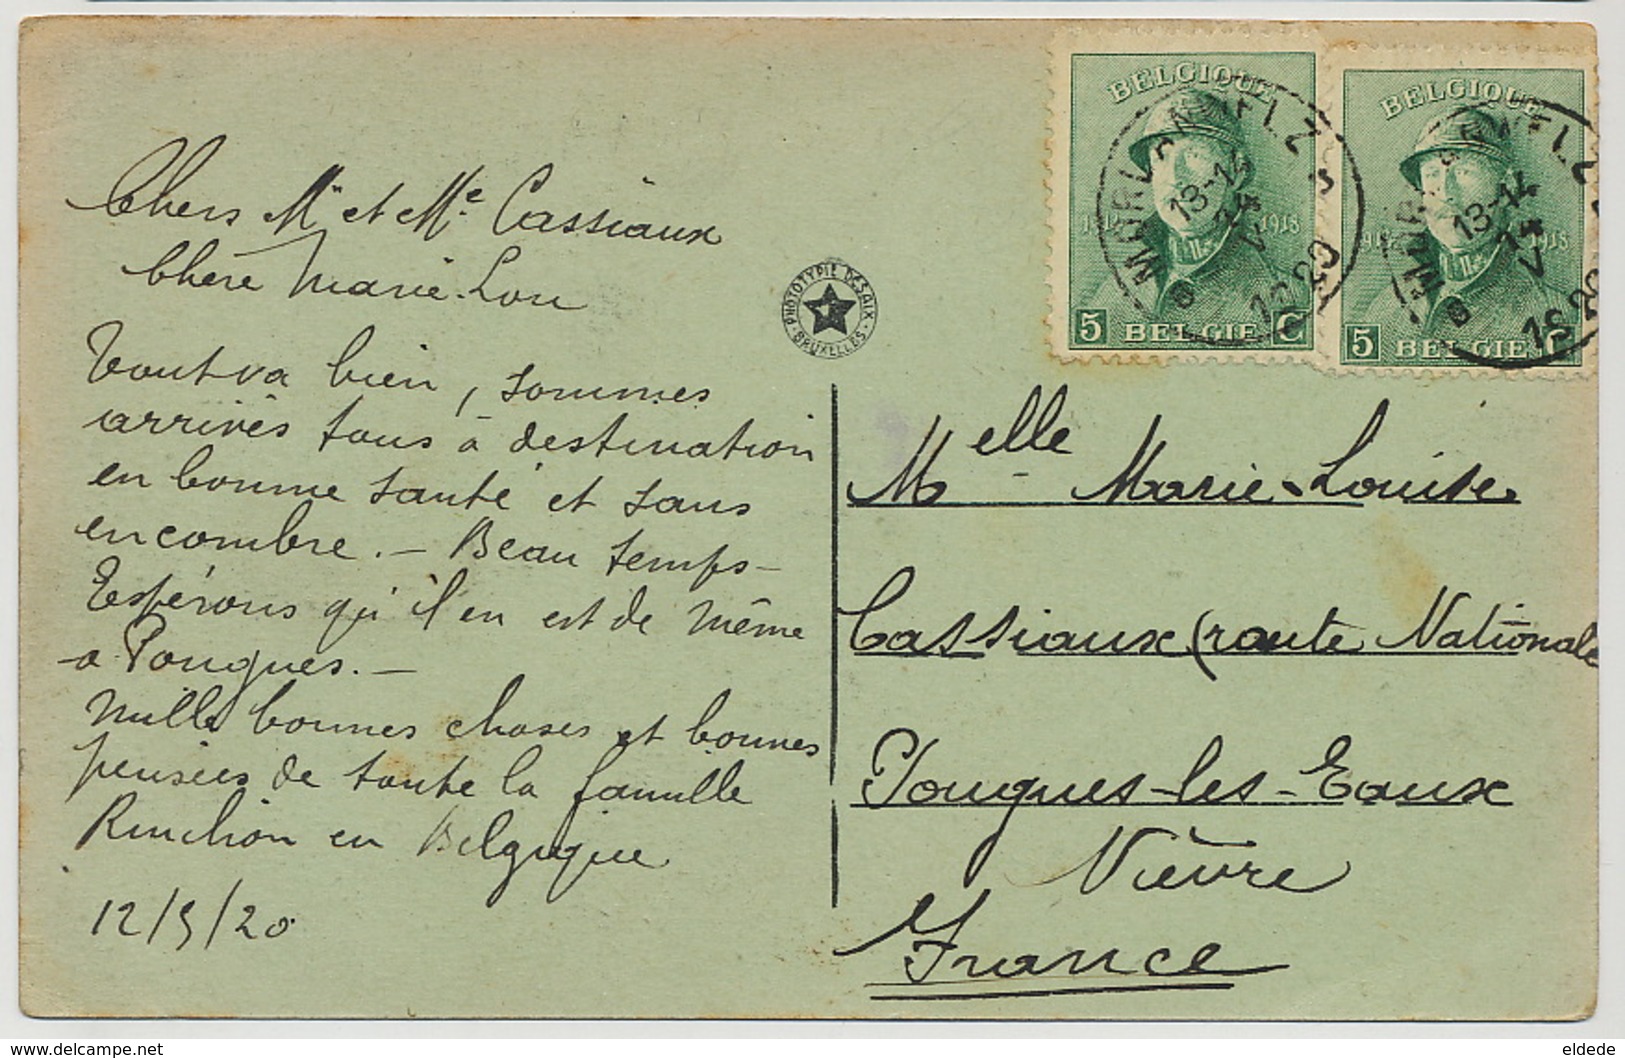 Chers Mr et Me Cassiaux
Chère Marie-Lou
Tout va bien, sommes
arrivés tous à destination
en bonne santé et sans
encombre. — Beau temps —
Espérons qu'il en est de même
a Pougues. —
Mille bonnes choses et bonnes
pensées de toute la famille
en Belgique
12/5/20
PHOTOTYPIE DESAIX
BRUXELLES
BELGIQUE
1918
5 BELGIE C
BELGIQUE
1918
5 BELGIE C
13-14
13-14
Melle Marie-Louise
Cassiaux (route Nationale
Pougues-les-Eaux
Nièvre
France
eldede
© www.delcampe.net